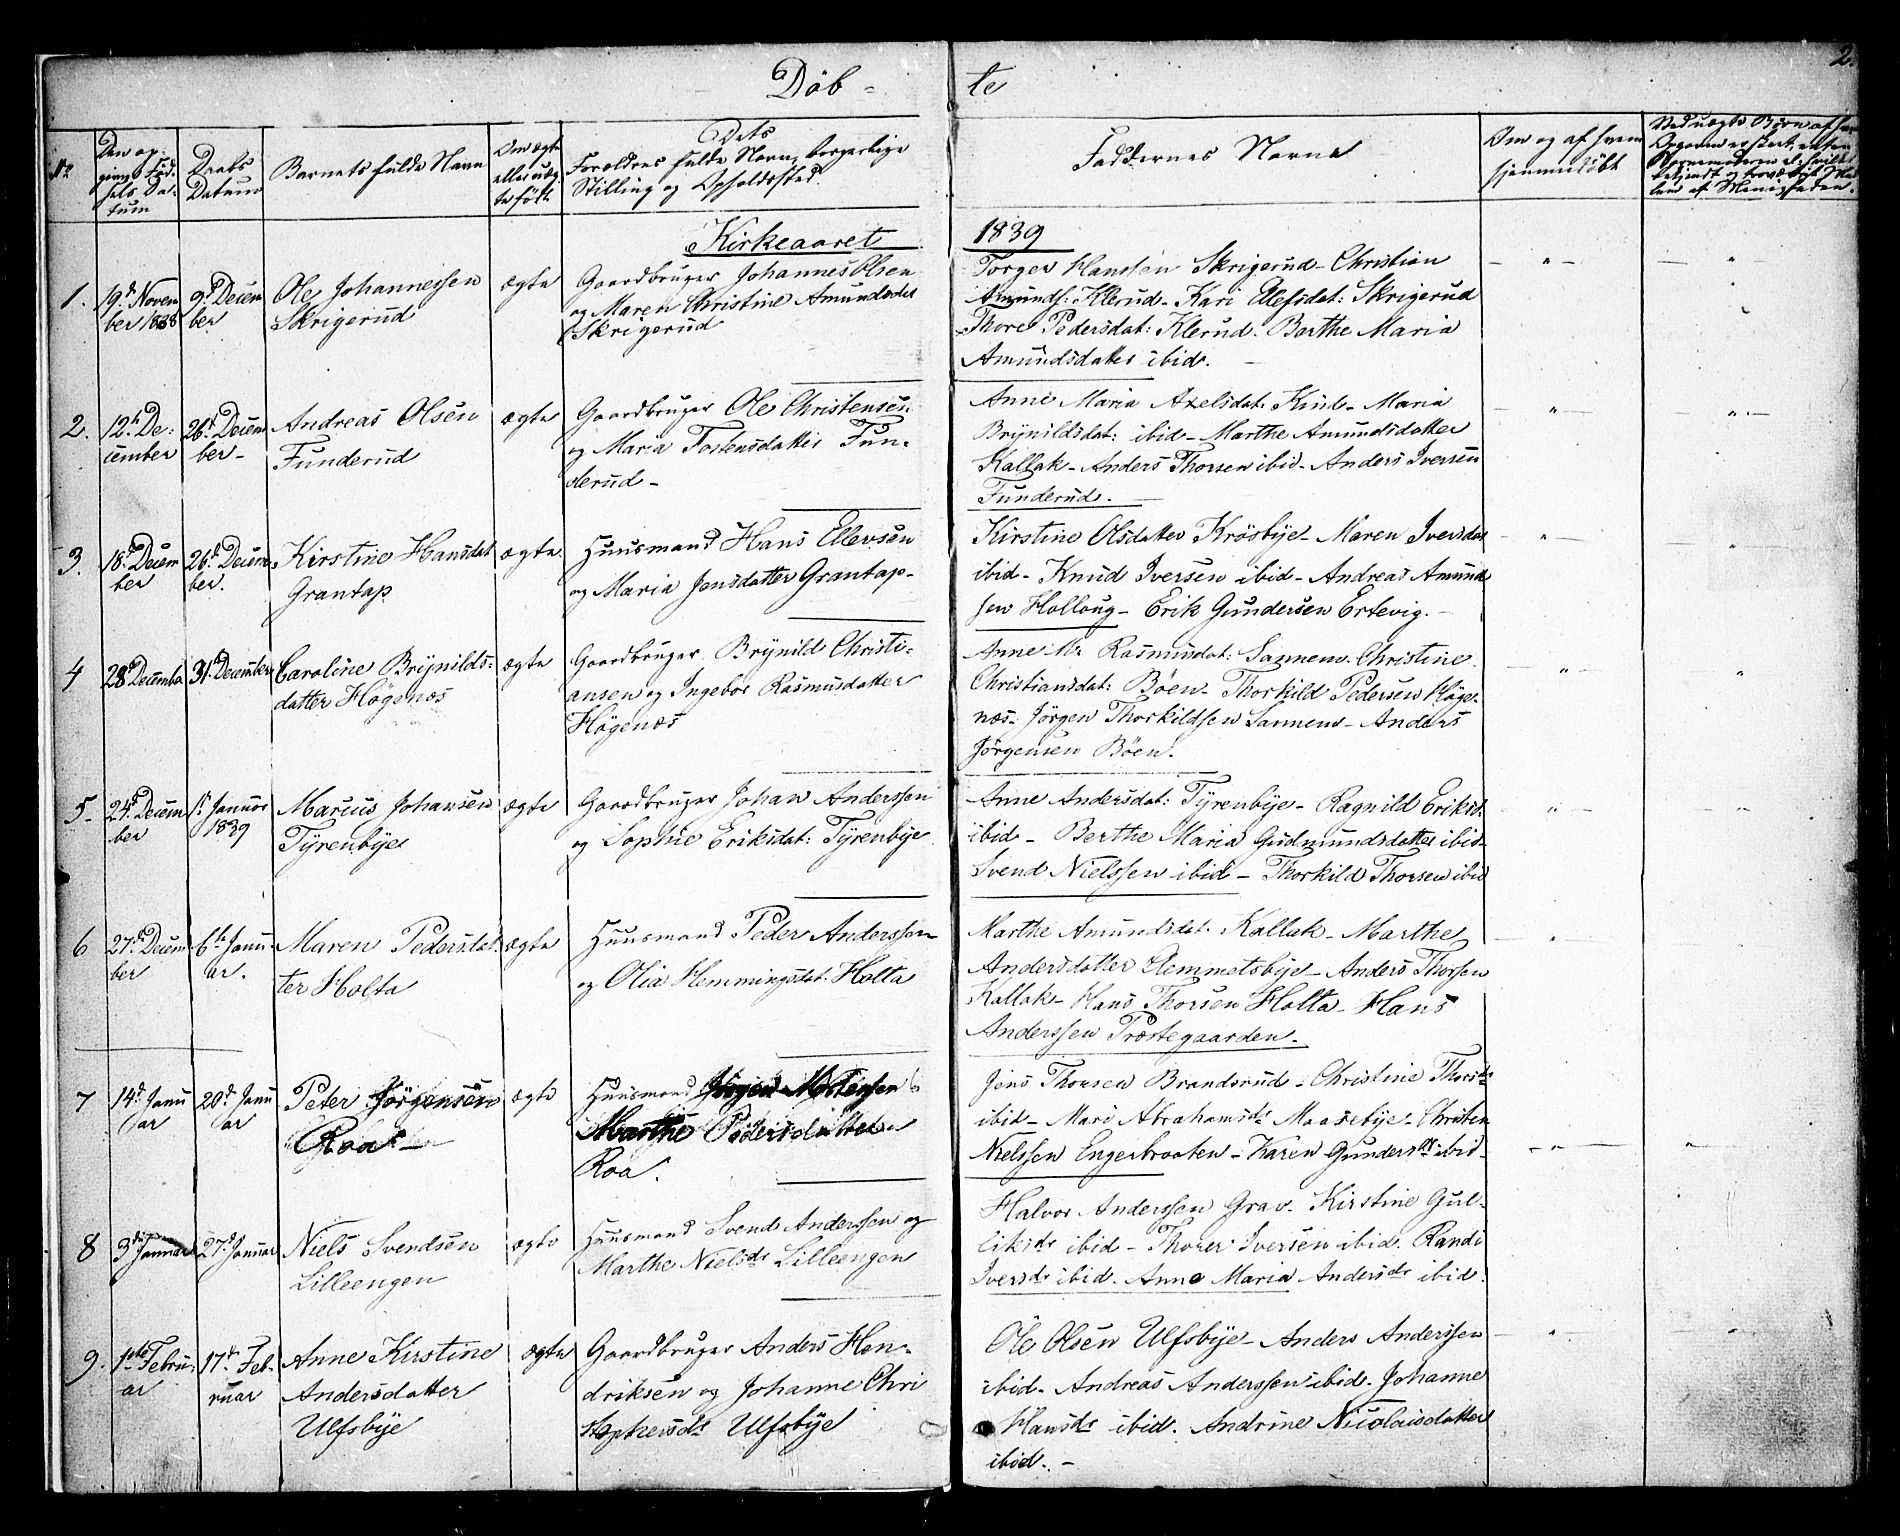 2.
Döb - te
No
Den op-
givne Fød-
sels Da-
tum
Daabs
Datum
Barnets fulde Navn
Om ægte
eller uæg-
te født
Dets
Forældres fulde Navn, borgerlige
Stilling og Opholdssted.
Faddernes Navne
Om og af hvem
hjemmedöbt
Kirkeaaret 1839
1.
19d Novem
ber 1838
9d Decem
ber
Ole Johannessen
Skrigerud
ægte
Gaardbruger Johannes Olsen
og Maren Christine Amundsdat
Skrigerud
Torger Hanssen Skrigerud - Christian
Amunds: Klerud - Kari Elefsdat: Skrigerud
Thore Pedersdat: Klerud. Berthe Maria
Amundsdatter ibid.
2.
12te De-
cember
26d Decem
ber -
Andreas Olsen
Funderud
ægte
Gaardbruger Ole Christensen
og Maria Tostensdatter Fun-
derud -
Anne Maria Axelsdat: Kind - Maria
Brynildsdat: ibid - Marthe Amundsdatter
Kallak - Anders Thorsen ibid - Anders Iversen
Funderud.
3.
18d Decem
ber
26d Decem
ber.
Kirstine Hansdat
Grantap
ægte
Huusmand Hans Ellevsen
og Maria Jensdatter Grantap -
Kirstine Olsdatter Krösbye - Maren Iversdat
ibid - Knud Iversen ibid - Andreas Amund
sen Holloug - Erik Gundersen Ertevig.
4
28d December
31d December
Caroline Brynilds-
datter Högenæs
ægte
Gaardbruger Brynild Christi-
ansen og Ingebor Rasmusdatter
Högenæs
Anne M. Rasmusdat: Sannem - Christine
Christiansdat: Böen - Thorkild Pedersen Höge-
næs - Jörgen Thorkildsen Sannem - Anders
Jörgensen Böen.
5 -
24d Decem
ber
1ste Januar
1839
Marius Johansen
Tyrenbye
ægte
Gaardbruger Johan Anderssen
og Sophie Eriksdat: Tyrenbye
Anne Andersdat: Tyrenbye - Ragnild Eriksd.
ibid - Berthe Maria Gudmundsdatter ibid -
Svend Nielssen ibid - Thorkild Thorsen ibid
6
27d Decem
ber
6te Janu-
ar.
Maren Pedersdat-
ter Holta
ægte
Huusmand Peder Anderssen
og Olia Hemmingsdat: Holta
Marthe Amundsdat: Kallak - Marthe
Andersdatter Clemmetsbye - Anders Thorsen
Kallak - Hans Thorsen Holta - Hans
Anderssen Præstegaarden.
7
14d Janu
ar
20d Janu
ar
Peter Jörgensen
Roa -
ægte
Huusmand Jörgen Mortensen
Marthe Pedersdatter
Roa.
Jens Thoresen Brandsrud - Christine Thorsdr
ibid - Mari Abrahamsdr Maasebye - Christen
Nielssen Engerbraaten - Karen Gundersdr ibid -
8
3die Januar
27d Januar
Niels Svendsen
Lilleengen
ægte
Huusmand Svend Anderssen og
Marthe Nielsdr Lilleengen
Halvor Anderssen Grav - Kirstine Gul-
liksdr ibid - Thorer Iversen ibid. Randi
Iversdr ibid. Anne Maria Andersdr ibid.
9.
1ste Febru-
ar
17d Feb-
ruar
Anne Kirstine
Andersdatter
Ulfsbye
ægte
Gaardbruger Anders Hen-
driksen og Johanne Chri
stophersdr Ulfsbye
Ole Olsen Ulfsbye - Anders Anderssen
ibid - Andreas Anderssen ibid. Johanne
Hansdr ibid. Andrine Nicolaisdatter
ibid. -